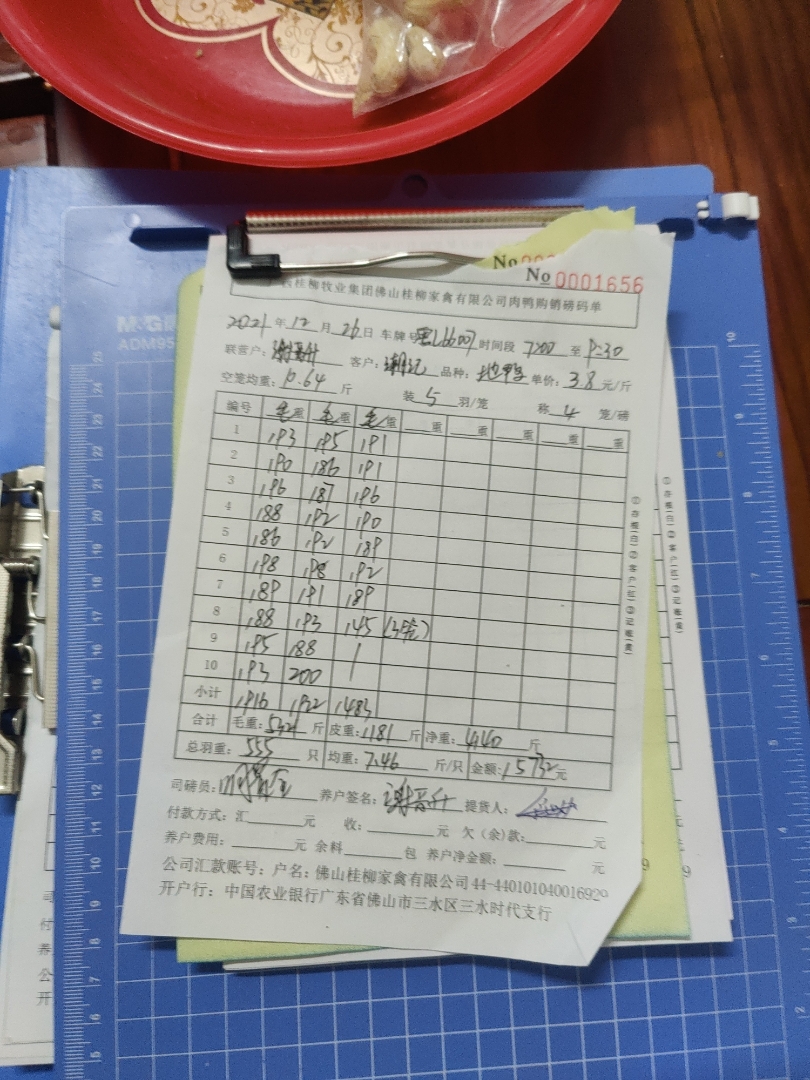 No 0001656
桂柳牧业集团佛山桂柳家禽有限公司肉鸭购销磅码单
2021 年 12 月 26 日 车牌号 时间段 7:00 至
联营户: 谢晋升 客户: 潮记 品种: 地鸭 单价: 3.8 元/斤
空笼均重: 10.64 斤 装 5 羽/笼 称 4 笼/磅
编号 毛重 毛重 毛重 重 重 重 重 重
1 193 195 191
2 190 186 191
3 196 187 196
4 188 192 190
5 186 192 189
6 198 198 192
7 189 191 189
8 188 193 145 (3笼)
9 195 188 /
10 193 200 /
小计 1916 1922 1483
合计 毛重: 5321 斤 皮重: 1181 斤 净重: 4140 斤
总羽重: 555 只 均重: 7.46 斤/只 金额: 15732 元
司磅员: 养户签名: 谢晋升 提货人:
付款方式: 汇 元 收: 元 欠(余)款: 元
养户费用: 元 余料 包 养户净金额: 元
公司汇款账号: 户名: 佛山桂柳家禽有限公司 44-440101040016920
开户行: 中国农业银行广东省佛山市三水区三水时代支行
①存根(白)②客户(红)③记账(黄)
①存根(白)②客户(红)③记账(黄)
M&G
ADM95